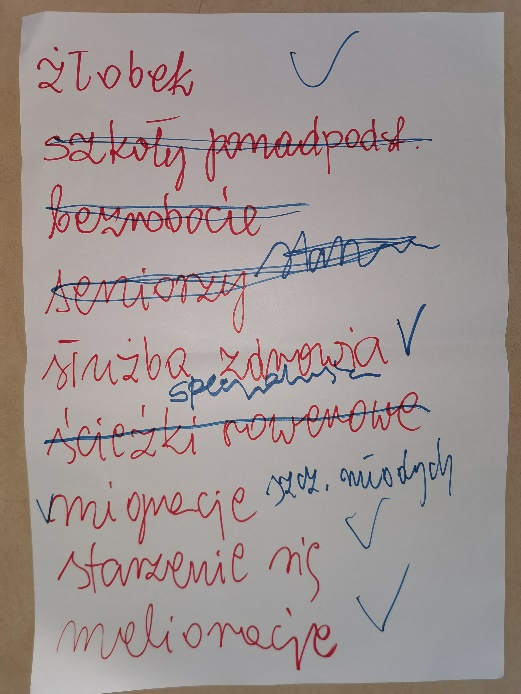 żłobek
szkoły ponadpodst.
bezrobocie
seniorzy
służba zdrowia
ścieżki rowerowe
migracje szcz. młodych
starzenie się
melioracje